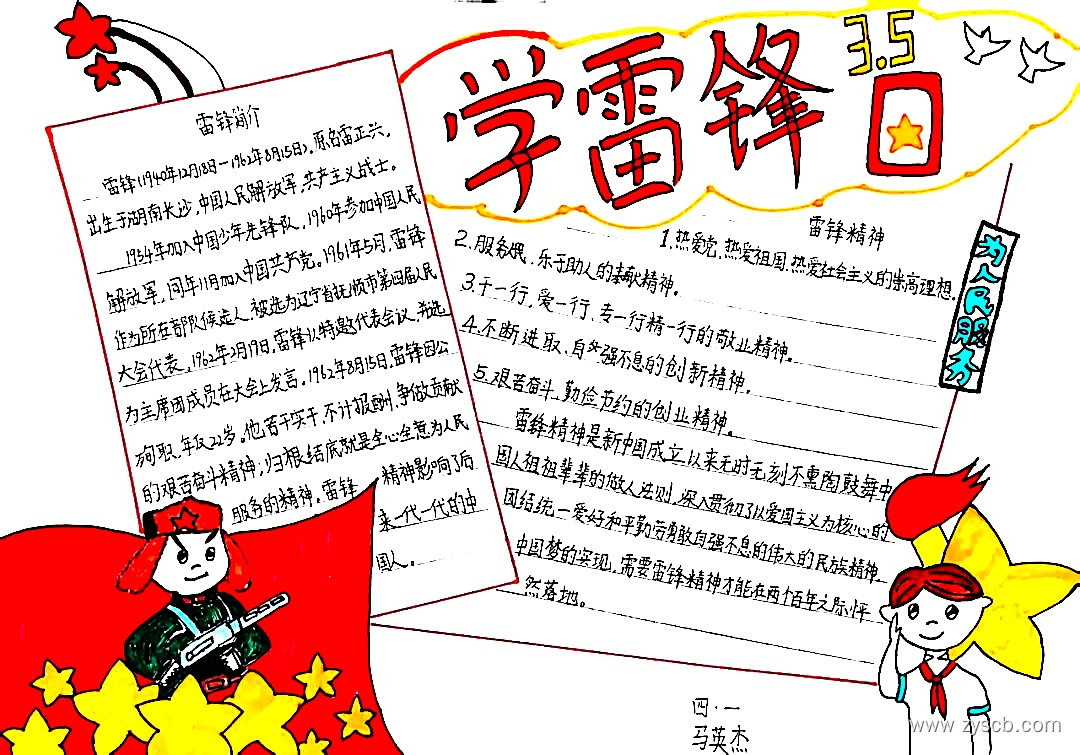 学雷锋日
3.5
雷锋简介
雷锋(1940年12月18日—1962年8月15日),原名雷正兴,
出生于湖南长沙,中国人民解放军,共产主义战士。
1954年加入中国少年先锋队,1960年参加中国人民
解放军,同年11月加入中国共产党。1961年5月,雷锋
作为所在部队候选人,被选为辽宁省抚顺市第四届人民
大会代表,1962年2月19日,雷锋以特邀代表会议,并选
为主席团成员在大会上发言。1962年8月15日,雷锋因公
殉职,年仅22岁。他苦干实干,不计报酬,争做贡献
的艰苦奋斗精神;归根结底就是全心全意为人民
服务的精神。雷锋精神影响了后
来一代一代的中
国人。
雷锋精神
1.热爱党,热爱祖国,热爱社会主义的崇高理想。
2.服务人民、乐于助人的奉献精神。
3.干一行、爱一行、专一行精一行的敬业精神。
4.不断进取、自女强不息的创新精神。
5.艰苦奋斗、勤俭节约的创业精神。
雷锋精神是新中国成立以来无时无刻不熏陶鼓舞中
国人祖祖辈辈的做人法则,深入贯彻了以爱国主义为核心的
团结统一爱好和平勤劳勇敢自强不息的伟大的民族精神
中国梦的实现,需要雷锋精神才能在两个百年之际怦
然落地。
为人民服务
四·一
马英杰
www.zyscb.com